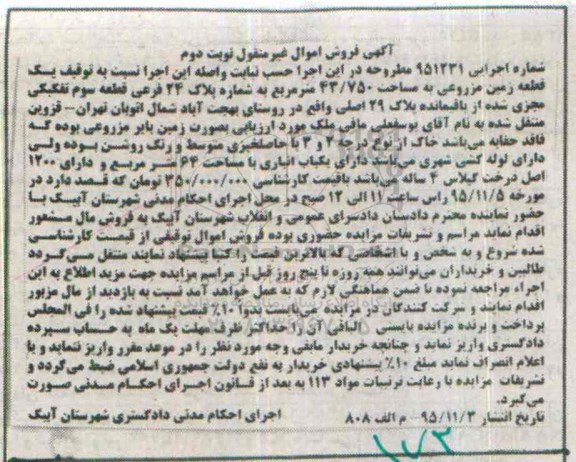 آگهی فروش اموال غیرمنقول نوبت دوم
شماره اجرایی ۹۵۱۲۳۱ مطروحه در این اجرا حسب نیابت واصله این اجرا نسبت به توقیف یک
قطعه زمین مزروعی به مساحت ۴۳/۷۵۰ مترمربع به شماره پلاک ۲۴ فرعی قطعه سوم تفکیکی
مجزی شده از باقیمانده پلاک ۲۹ اصلی واقع در روستای بهجت آباد شمال اتوبان تهران- قزوین
منتقل شده به نام آقای یوسفعلی مافی ملک مورد ارزیابی بصورت زمین بایر مزروعی بوده که
فاقد حقابه می‌باشد خاک از نوع درجه ۲ و ۳ با حاصلخیزی متوسط و رنگ روشن بوده ولی
دارای لوله کشی شهری می‌باشد دارای یکباب انباری با مساحت ۶۴ متر مربع و دارای ۱۲۰۰
اصل درخت گیلاس ۴ ساله می‌باشد باقیمت کارشناسی ۳۵۰/۰۰۰/۰۰۰ تومان که قصد دارد در
مورخه ۹۵/۱۱/۵ راس ساعت ۱۱ الی ۱۲ صبح در محل اجرای احکام مدنی شهرستان آبیک با
حضور نماینده محترم دادستان دادسرای عمومی و انقلاب شهرستان آبیک به فروش مال مسشعور
اقدام نماید مراسم و تشریفات مزایده حضوری بوده فروش اموال توقیفی از قیمت کارشناسی
شده شروع و به شخص و یا اشخاصی که بالاترین قیمت را کتبا پیشنهاد نمایند منتقل می‌گردد
طالبین و خریداران می‌توانند همه روزه تا پنج روز قبل از مراسم مزایده جهت مزید اطلاع به این
اجراء مراجعه نموده تا ضمن هماهنگی لازم که به عمل خواهد آمد نسبت به بازدید از مال مزبور
اقدام نمایند و شرکت کنندگان در مزایده می‌بایست بدوا ۱۰٪ قیمت پیشنهاد شده را فی المجلس
پرداخت و برنده مزایده بایستی الباقی آن را حداکثر ظرف مهلت یک ماه به حساب سپرده
دادگستری واریز نماید و چنانچه خریدار مابقی وجه مورد نظر را در موعد مقرر واریز ننماید و یا
اعلام انصراف نماید مبلغ ۱۰٪ پیشنهادی خریدار به نفع دولت جمهوری اسلامی ضبط می‌گردد و
تشریفات مزایده با رعایت ترتیبات مواد ۱۱۳ به بعد از قانون اجرای احکام مدنی صورت
می‌گیرد.
تاریخ انتشار ۹۵/۱۱/۳ - م الف ۸۰۸ اجرای احکام مدنی دادگستری شهرستان آبیک
۱۷۳